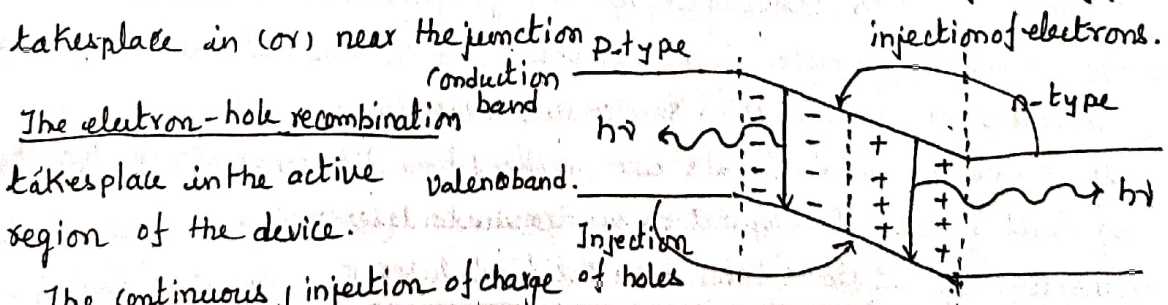 takesplace in (or) near the junction
The electron-hole recombination
takesplace in the active
region of the device.
The continuous injection of charge
p-type
injection of electrons.
Conduction
band
n-type
hν
hν
Valenceband.
Injection
of holes